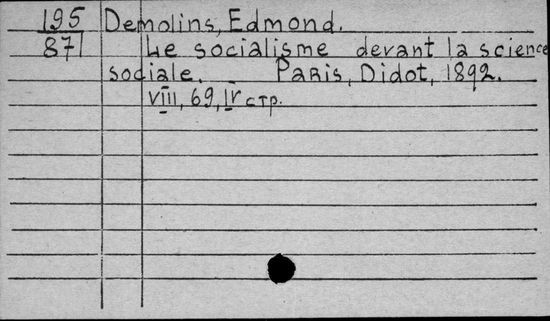 195 Demolins, Edmond.
871 Le socialisme devant la science
sociale. Paris, Didot, 1892.
VIII, 69, IV стр.